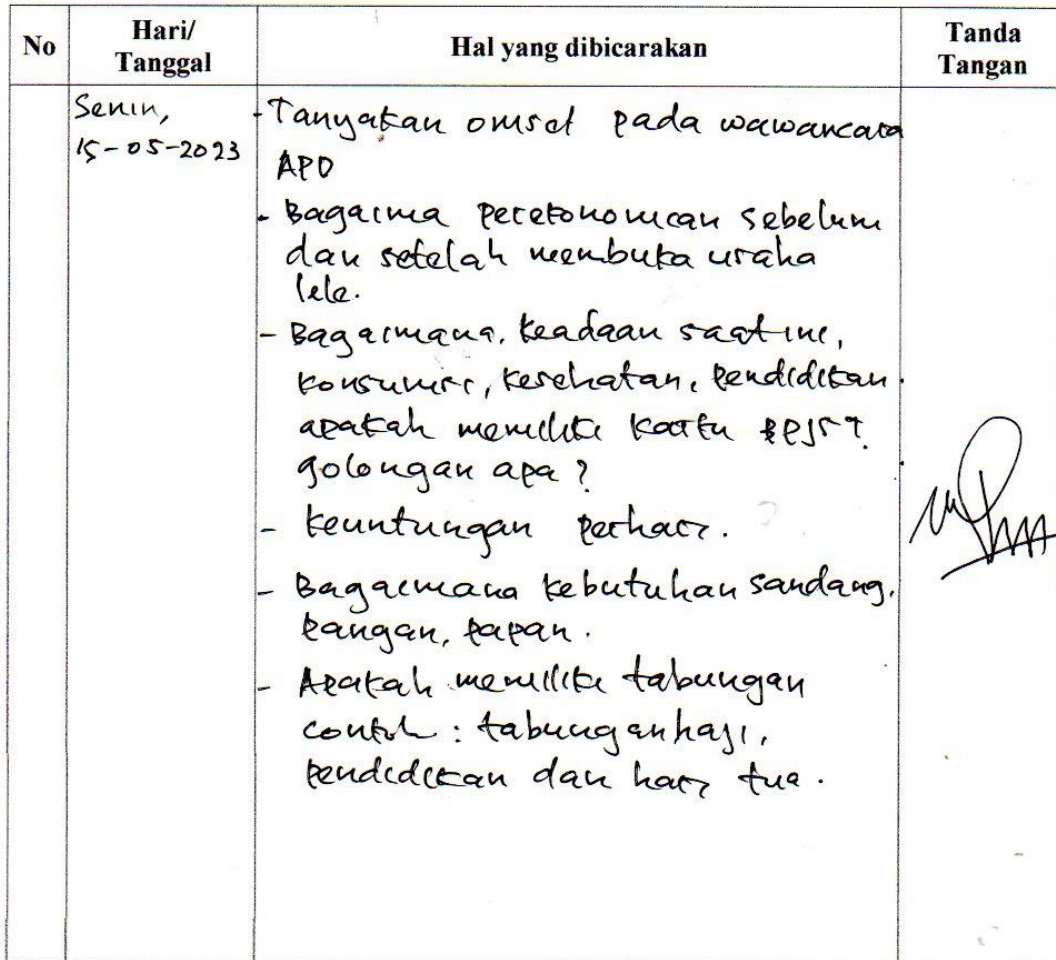 No
Hari/
Tanggal
Hal yang dibicarakan
Tanda
Tangan
Senin,
15-05-2023
- Tanyakan omset pada wawancara
APD
- Bagaima perekonomian sebelum
dan setelah membuka usaha
lele.
- Bagaimana, keadaan saat ini,
konsumsi, kesehatan, pendidikan.
apakah memiliki kartu BPJS?
golongan apa?
- keuntungan perhari.
- Bagaimana kebutuhan sandang,
pangan, papan.
- Apakah memiliki tabungan
contoh: tabungan haji,
pendidikan dan hari tua.